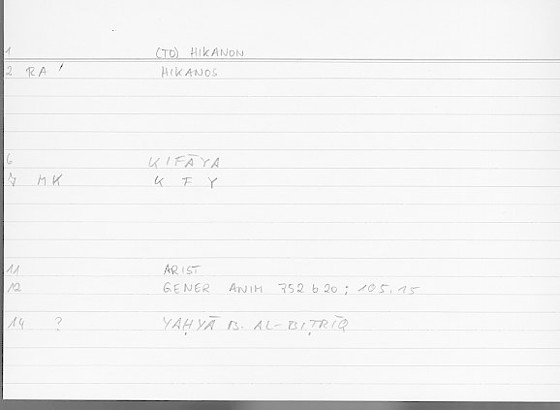 1 (TO) HIKANON
2 RA ' HIKANOS
6 KIFĀYA
7 MK K F Y
11 ARIST
12 GENER ANIM 752 b 20 ; 105.15
14 ? YAḤYĀ B. AL-BIṬRĪQ